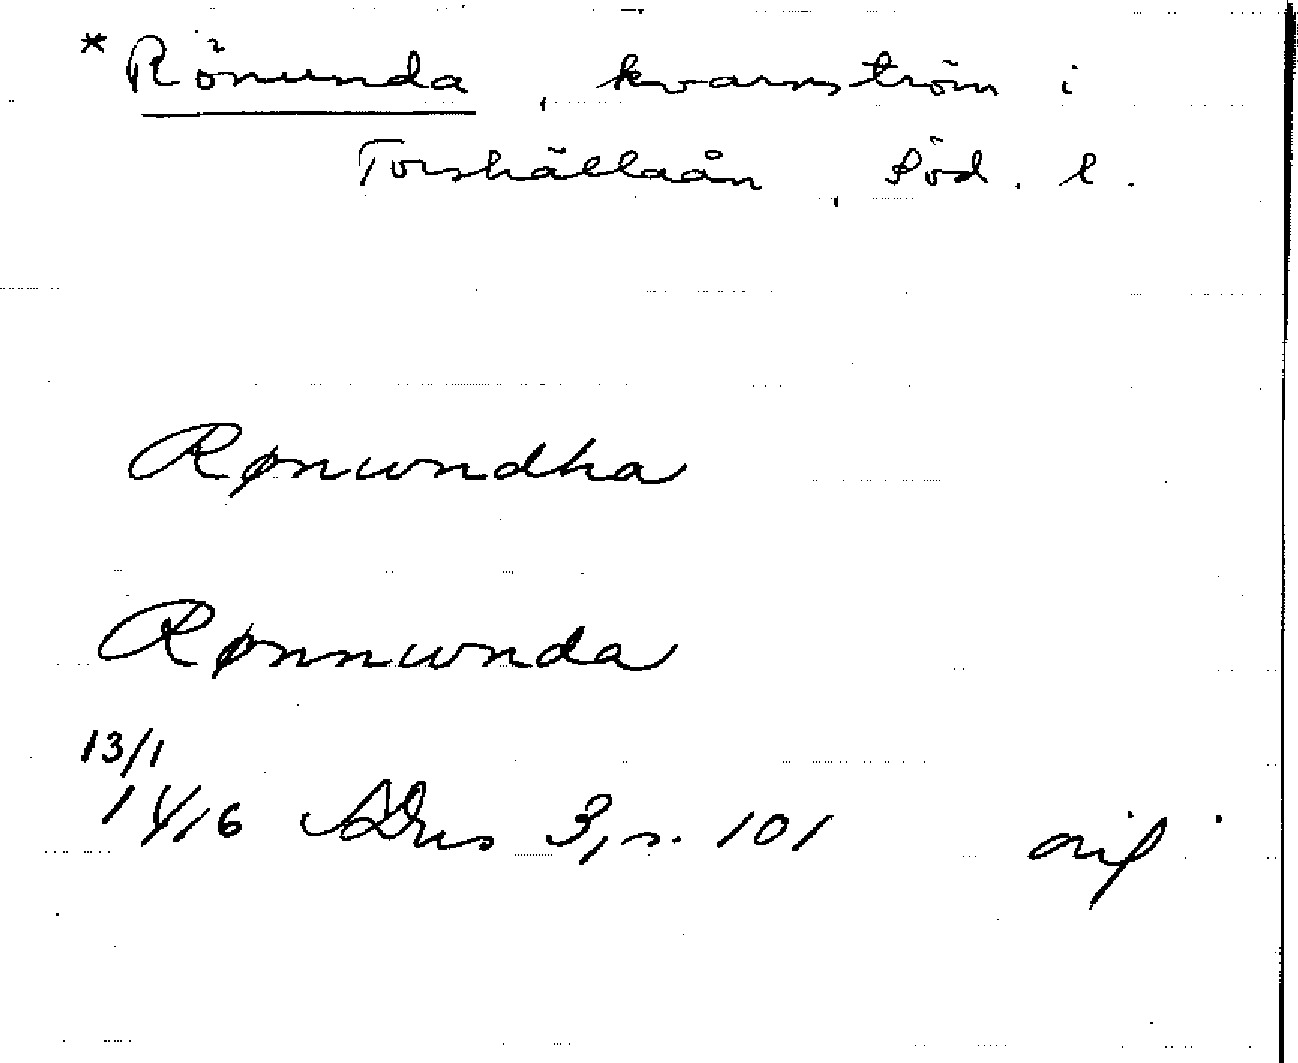 * Rönunda, kvarnström i
Torshällaån, Söd. l.
Rønundha
Rønnunda
13/1
1416 SDns 3, s. 101 orig.